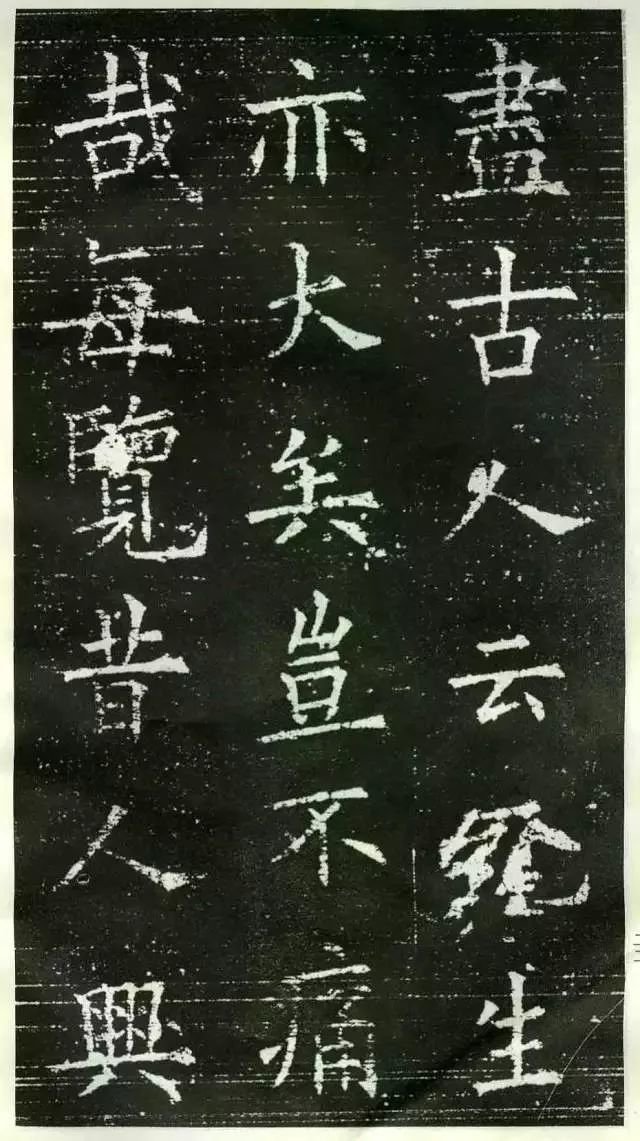 盡古人云生
亦大矣豈不痛
哉每覽昔人興